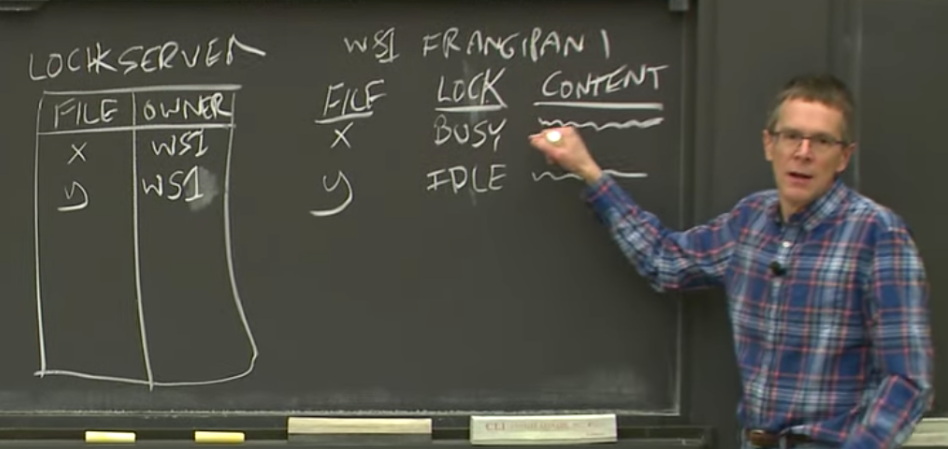 LOCKSERVER
FILE OWNER
X WS1
y WS1
WS1 FRANGIPANI
FILE LOCK CONTENT
X BUSY
y IDLE